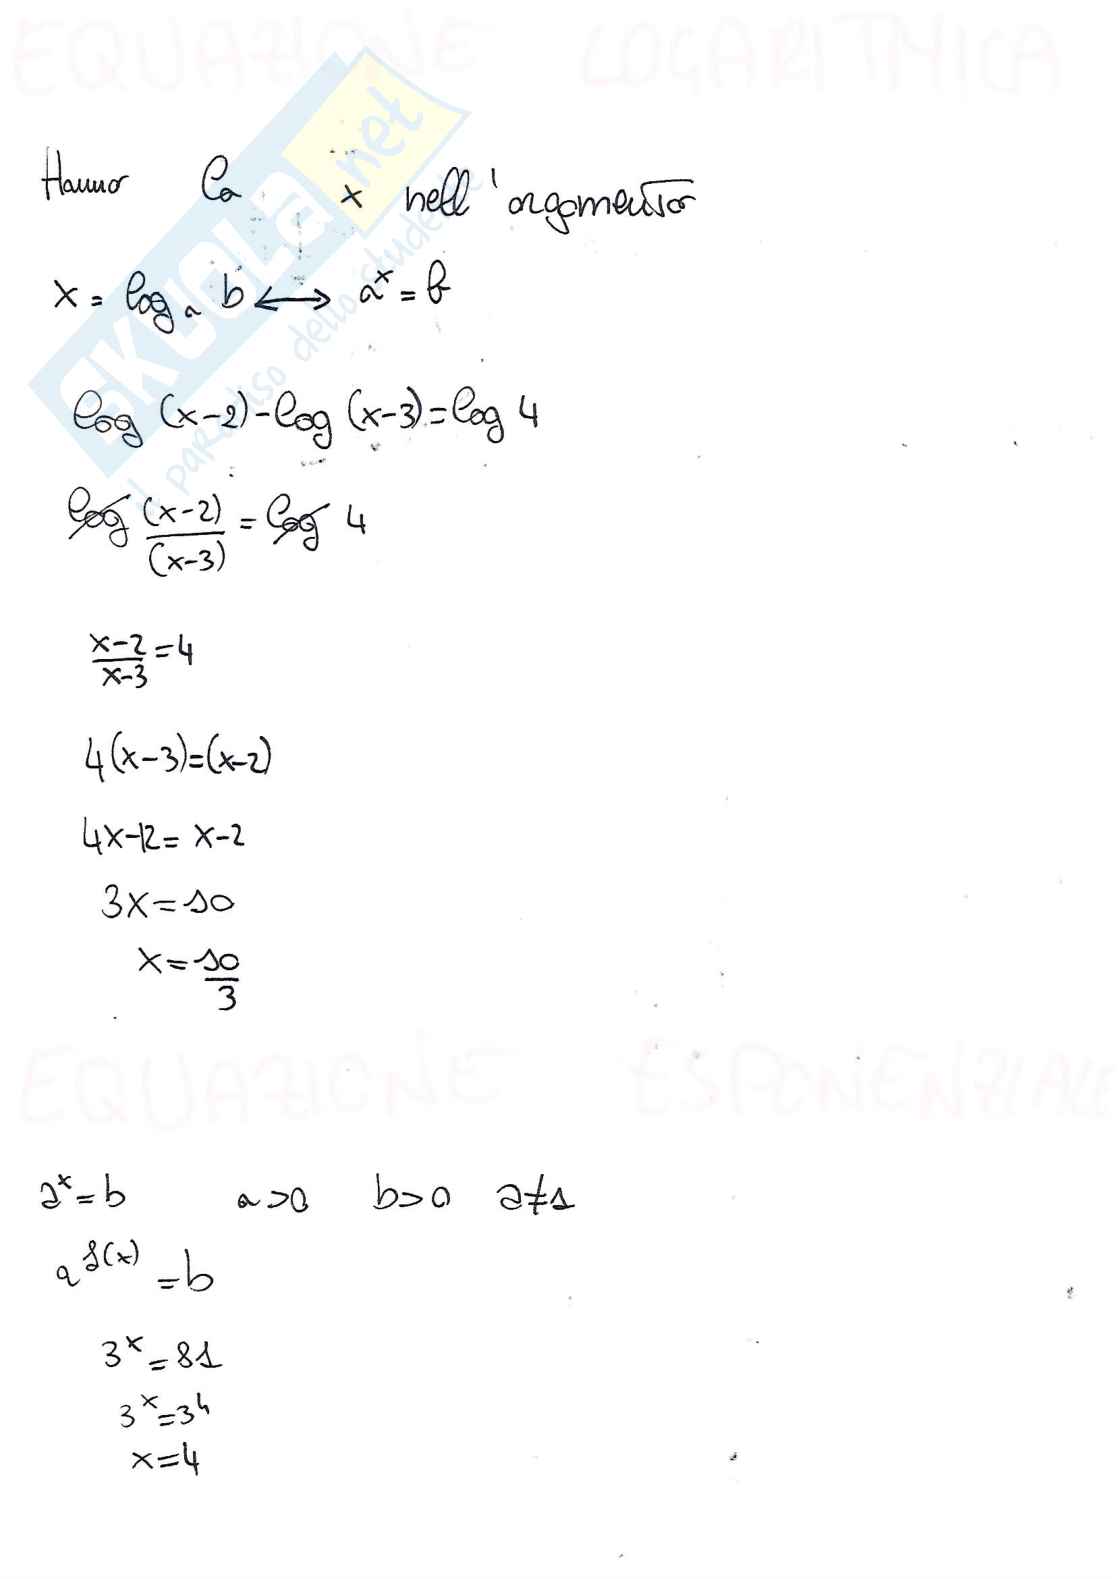 EQUAZIONE LOGARITMICA
Hanno la x nell'argomento
x = log_a b ⟷ a^x = b
log (x-2) - log (x-3) = log 4
log (x-2)/(x-3) = log 4
x-2/x-3 = 4
4(x-3)=(x-2)
4x-12 = x-2
3x = 10
x = 10/3
EQUAZIONE ESPONENZIALE
a^x = b a>0 b>0 a≠1
a^f(x) = b
3^x = 81
3^x = 3^4
x = 4
SKUOLA.net
il paradiso dello studente